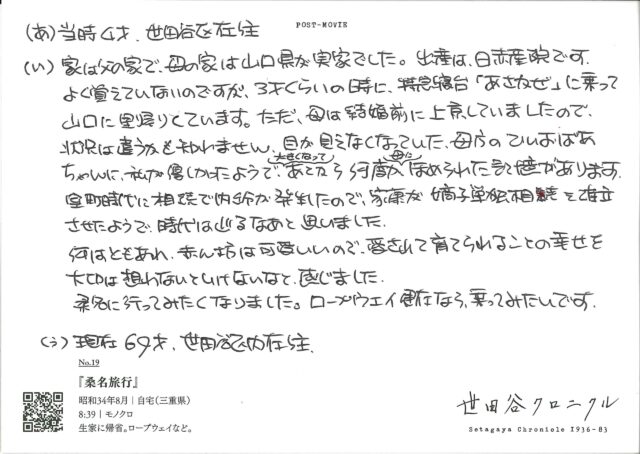 POST-MOVIE
(あ)当時4才、世田谷区在住
(い)家は父の家で、母の家は山口県が実家でした。出産は、日赤産院です。
よく覚えていないのですが、3才くらいの時に、特急寝台「あさかぜ」に乗って
山口に里帰りしています。ただ、母は結婚前に上京していましたので、
状況は違うかも知れません。目が見えなくなっていた、母方のひいおばあ
ちゃんに、私が優しかったようで、大きくなってあとから何度か母にほめられた記憶があります。
室町時代に相続で内紛が発生したので、家康が嫡子単独相続を確立
させたようで、時代は巡るなあと思いました。
何はともあれ、赤ん坊は可愛いいので、愛されて育てられることの幸せを
大切に想わないといけないなと、感じました。
桑名に行ってみたくなりました。ロープウェイ健在なら、乗ってみたいです。
(う)現在69才、世田谷区内在住
No.19
『桑名旅行』
昭和34年8月|自宅(三重県)
8:39|モノクロ
生家に帰省。ロープウェイなど。
世田谷クロニクル
Setagaya Chronicle 1936-83